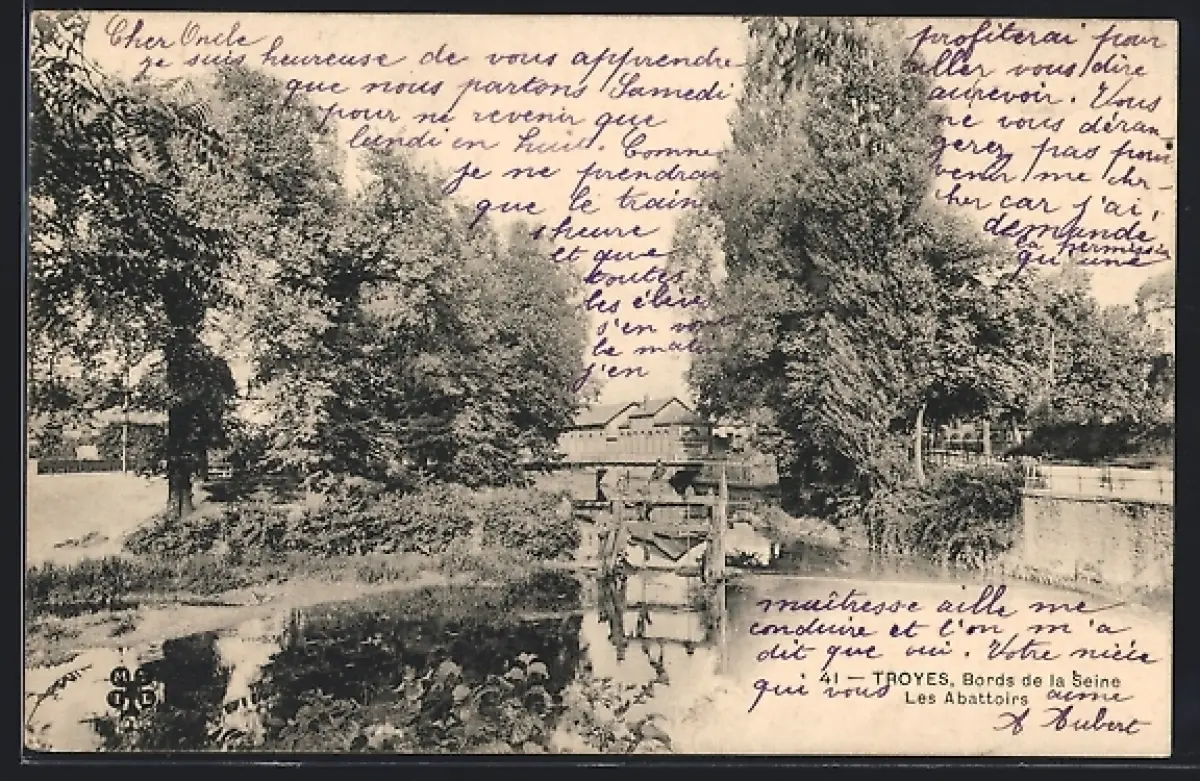 Cher Oncle
je suis heureuse de vous apprendre
que nous partons Samedi
pour ne revenir que
lundi en huit. Comme
je ne prendrai
que le train
heure
et que
toutes
les élèves
s'en vont
le matin
j'en
profiterai pour
aller vous dire
aurevoir. Vous
ne vous déran-
gerez pas pour
venir me cher-
cher car j'ai
demandé
la permission
qu'une
maîtresse aille me
conduire et l'on m'a
dit que oui. Votre nièce
qui vous aime
A Aubert
41 — TROYES, Bords de la Seine
Les Abattoirs